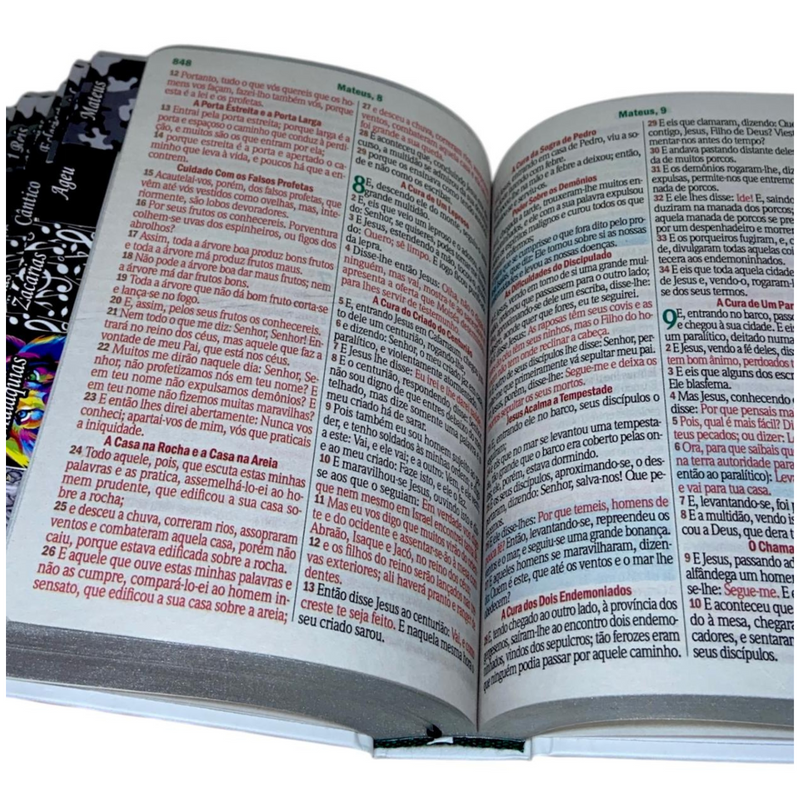 848
Mateus, 8
12 Portanto, tudo o que vós quereis que os ho-
mens vos façam, fazei-lho também vós, porque
esta é a lei e os profetas.
A Porta Estreita e a Porta Larga
13 Entrai pela porta estreita; porque larga é a
porta e espaçoso o caminho que conduz à perdi-
ção, e muitos são os que entram por ela;
14 porque estreita é a porta e apertado o ca-
minho que leva à vida, e poucos há que a en-
contrem.
Cuidado Com os Falsos Profetas
15 Acautelai-vos, porém, dos falsos profetas, que
vêm até vós vestidos como ovelhas, mas, inte-
riormente, são lobos devoradores.
16 Por seus frutos os conhecereis. Porventura
colhem-se uvas dos espinheiros, ou figos dos
abrolhos?
17 Assim, toda a árvore boa produz bons frutos
e toda a árvore má produz frutos maus.
18 Não pode a árvore boa dar maus frutos; nem
a árvore má dar frutos bons.
19 Toda a árvore que não dá bom fruto corta-se
e lança-se no fogo.
20 E, assim, pelos seus frutos os conhecereis.
21 Nem todo o que me diz: Senhor, Senhor! En-
trará no reino dos céus, mas aquele que faz a
vontade de meu Pai, que está nos céus.
22 Muitos me dirão naquele dia: Senhor, Se-
nhor, não profetizamos nós em teu nome? E
em teu nome não expulsamos demônios? E
em teu nome não fizemos muitas maravilhas?
23 E então lhes direi abertamente: Nunca vos
conheci; apartai-vos de mim, vós que praticais
a iniquidade.
A Casa na Rocha e a Casa na Areia
24 Todo aquele, pois, que escuta estas minhas
palavras e as pratica, assemelhá-lo-ei ao ho-
mem prudente, que edificou a sua casa so-
bre a rocha;
25 e desceu a chuva, correram rios, assopraram
ventos e combateram aquela casa, porém não
caiu, porque estava edificada sobre a rocha.
26 E aquele que ouve estas minhas palavras e
não as cumpre, compará-lo-ei ao homem in-
sensato, que edificou a sua casa sobre a areia;
27 e desceu a chuva,
ventos, combateram
grande a sua
28 E aconteceu que, concluindo
curso, a multidão se
29 porque os ensinava
de e não como os escribas.
A Cura de Um Leproso
8 E, descendo ele do monte,
grande multidão.
2 E, eis que veio um leproso e o
do: Senhor, se quiseres, podes
3 E, Jesus, estendendo a mão,
do: Quero; sê limpo. E logo ficou
da lepra.
4 Disse-lhe então Jesus:
ninguém, mas vai, mostra-te
apresenta a oferta que Moisés
para lhes servir de testemunho.
A Cura do Criado do Centurião
5 E, entrando Jesus em Cafarnaum,
to dele um centurião, rogando-lhe
6 e dizendo: Senhor, o meu criado
paralítico, e violentamente atormentado.
7 E Jesus lhe disse: Eu irei e lhe darei saúde.
8 E o centurião, respondendo,
não sou digno de que entres debaixo
telhado, mas dize somente uma
meu criado há de sarar.
9 Pois também eu sou homem sujeito
der, e tenho soldados às minhas ordens;
a este: Vai, e ele vai; e a outro: Vem, e ele
e ao meu criado: Faze isto, e ele o faz.
10 E maravilhou-se Jesus, ouvindo isto,
se aos que o seguiam: Em verdade vos
que nem mesmo em Israel encontrei
11 Mas eu vos digo que muitos virão do
te e do ocidente e assentar-se-ão à mesa
Abraão, Isaque e Jacó, no reino dos céus;
12 e os filhos do reino serão lançados nas
vas exteriores; ali haverá pranto e ranger de
dentes.
13 Então disse Jesus ao centurião: Vai, e como
creste te seja feito. E naquela mesma hora o
seu criado sarou.
Mateus, 9
A Cura da Sogra de Pedro
entrando em casa de Pedro, viu a so-
e a febre a deixou; então,
Poder Sobre os Demônios
a tarde, trouxeram-lhe muitos en-
e ele com a sua palavra expulsou
malignos e curou todos os que
cumprisse o que fora dito pelo pro-
Ele tomou sobre si as nossas
e levou as nossas doenças.
Dificuldades do Discipulado
vendo em torno de si uma grande mul-
que passassem para o outro lado;
aproximando-se dele um escriba, disse-lhe:
quer que fores, eu te seguirei.
disse: As raposas têm seus covis e as
têm seus ninhos, mas o Filho do ho-
tem onde reclinar a cabeça.
seus discípulos lhe disse: Senhor, per-
que primeiramente vá sepultar meu pai.
porém, disse-lhe: Segue-me e deixa os
sepultar os seus mortos.
Jesus Acalma a Tempestade
entrando ele no barco, seus discípulos o
que no mar se levantou uma tempesta-
grande que o barco era coberto pelas on-
porém, estava dormindo.
seus discípulos, aproximando-se, o des-
dizendo: Senhor, salva-nos! Que pe-
E ele disse-lhes: Por que temeis, homens de
fé? Então, levantando-se, repreendeu os
e o mar, e seguiu-se uma grande bonança.
aqueles homens se maravilharam, dizen-
Quem é este, que até os ventos e o mar lhe
obedecem?
A Cura dos Dois Endemoniados
E, tendo chegado ao outro lado, à província dos
saíram-lhe ao encontro dois endemo-
vindos dos sepulcros; tão ferozes eram
que ninguém podia passar por aquele caminho.
29 E eis que clamaram, dizendo: Que
contigo, Jesus, Filho de Deus? Viest
mentar-nos antes do tempo?
30 E andava pastando distante deles
da de muitos porcos.
31 E os demônios rogaram-lhe, diz
expulsas, permite-nos que entremo
nada de porcos.
32 E ele lhes disse: Ide! E, saindo
duziram na manada dos porcos;
aquela manada de porcos se pre
por um despenhadeiro e morrera
33 E os porqueiros fugiram, e, c
de, divulgaram todas aquelas co
tecera aos endemoninhados.
34 E eis que toda aquela cidade
de Jesus, e, vendo-o, rogaram-l
se dos seus termos.
A Cura de Um Par
9 E, entrando no barco, passou
e chegou à sua cidade. E eis
um paralítico, deitado numa
2 E Jesus, vendo a fé deles, dis
tem bom ânimo, perdoados t
3 E eis que alguns dos escrib
Ele blasfema.
4 Mas Jesus, conhecendo
disse: Por que pensais ma
5 Pois, qual é mais fácil? Di
teus pecados; ou dizer: L
6 Ora, para que saibais qu
na terra autoridade para
então ao paralítico): Leva
e vai para tua casa.
7 E, levantando-se, foi p
8 E a multidão, vendo is
cou a Deus, que dera t
O Chama
9 E Jesus, passando ad
alfândega um homem
se-lhe: Segue-me. E e
10 E aconteceu que
do à mesa, chegara
cadores, e sentara
seus discípulos.
Mateus
Ageu
Cântico
Zacarias